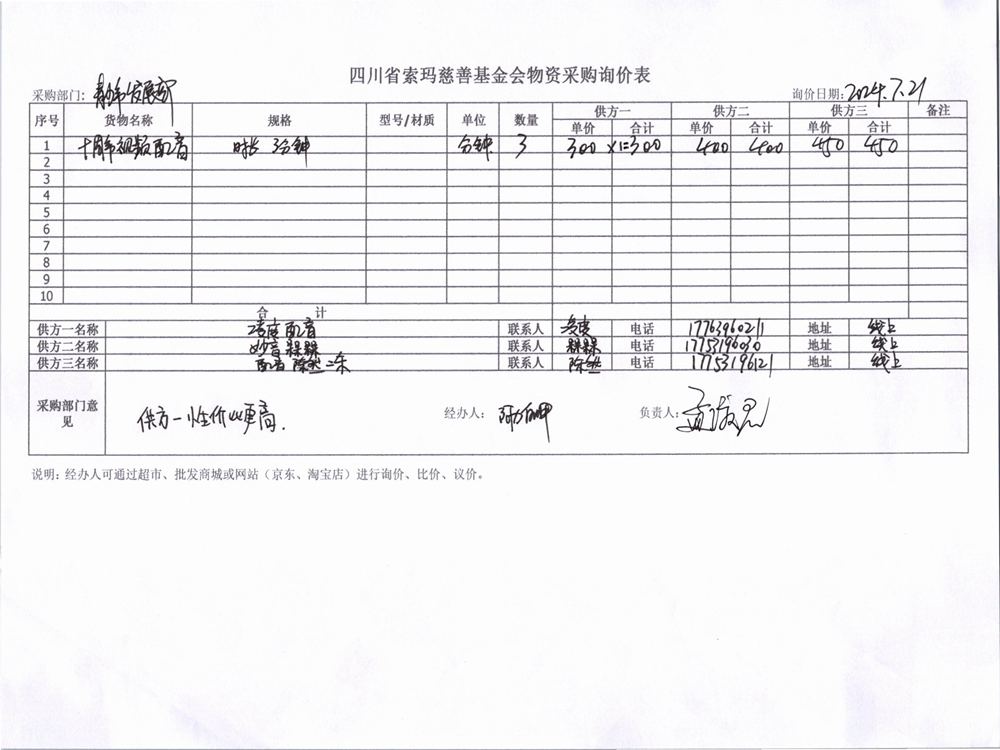 四川省索玛慈善基金会物资采购询价表
采购部门： 发展部 询价日期：2024.7.21
序号 货物名称 规格 型号/材质 单位 数量 供方一 供方二 供方三 备注
单价 合计 单价 合计 单价 合计
1 十周年视频配音 时长 3分钟 分钟 3 300 ×1=300 400 400 450 450
2
3
4
5
6
7
8
9
10
合 计
供方一名称 配音 联系人 电话 17763960211 地址 线上
供方二名称 妙音 联系人 电话 17753196030 地址 线上
供方三名称 配音 联系人 电话 17753196121 地址 线上
采购部门意见 供方一性价比更高. 经办人： 负责人：
说明：经办人可通过超市、批发商城或网站（京东、淘宝店）进行询价、比价、议价。